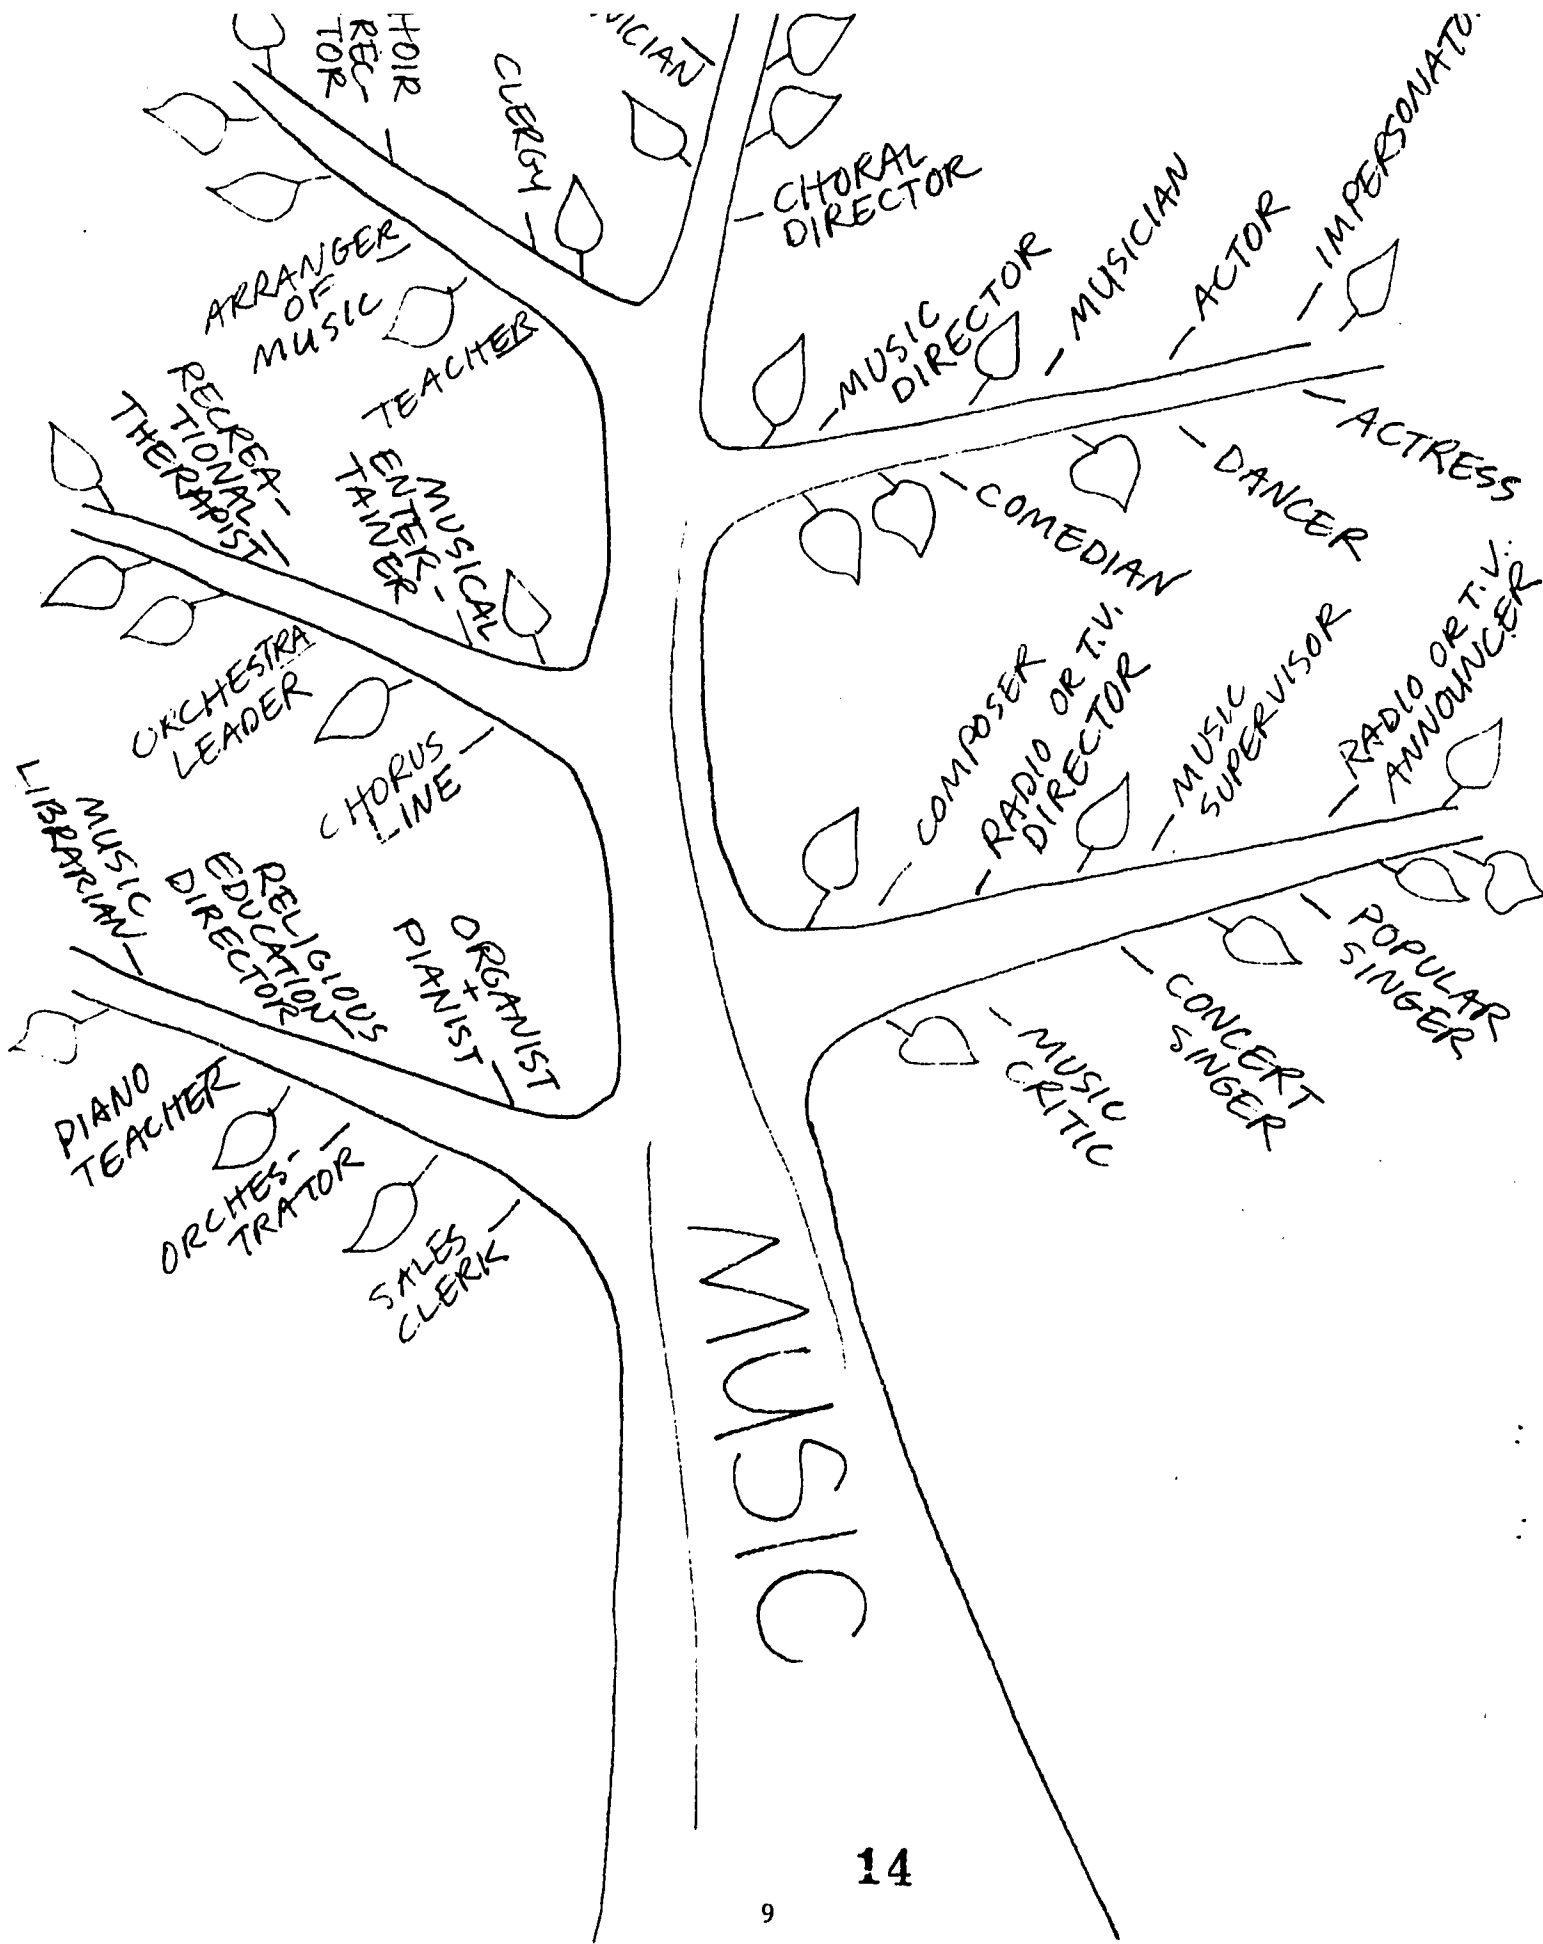 HOIR
REC-
TOR
CLERGY
NICIAN
CHORAL
DIRECTOR
MUSIC
DIRECTOR
MUSICIAN
ACTOR
IMPERSONATO
ARRANGER
OF
MUSIC
TEACHER
ACTRESS
DANCER
COMEDIAN
RECREA-
TIONAL
THERAPIST
MUSICAL
ENTER-
TAINER
ORCHESTRA
LEADER
CHORUS
LINE
COMPOSER
RADIO OR T.V.
DIRECTOR
MUSIC
SUPERVISOR
RADIO OR T.V.
ANNOUNCER
MUSIC
LIBRARIAN
RELIGIOUS
EDUCATION
DIRECTOR
ORGANIST
+
PIANIST
POPULAR
SINGER
CONCERT
SINGER
MUSIC
CRITIC
PIANO
TEACHER
ORCHES-
TRATOR
SALES
CLERK
MUSIC
14
9